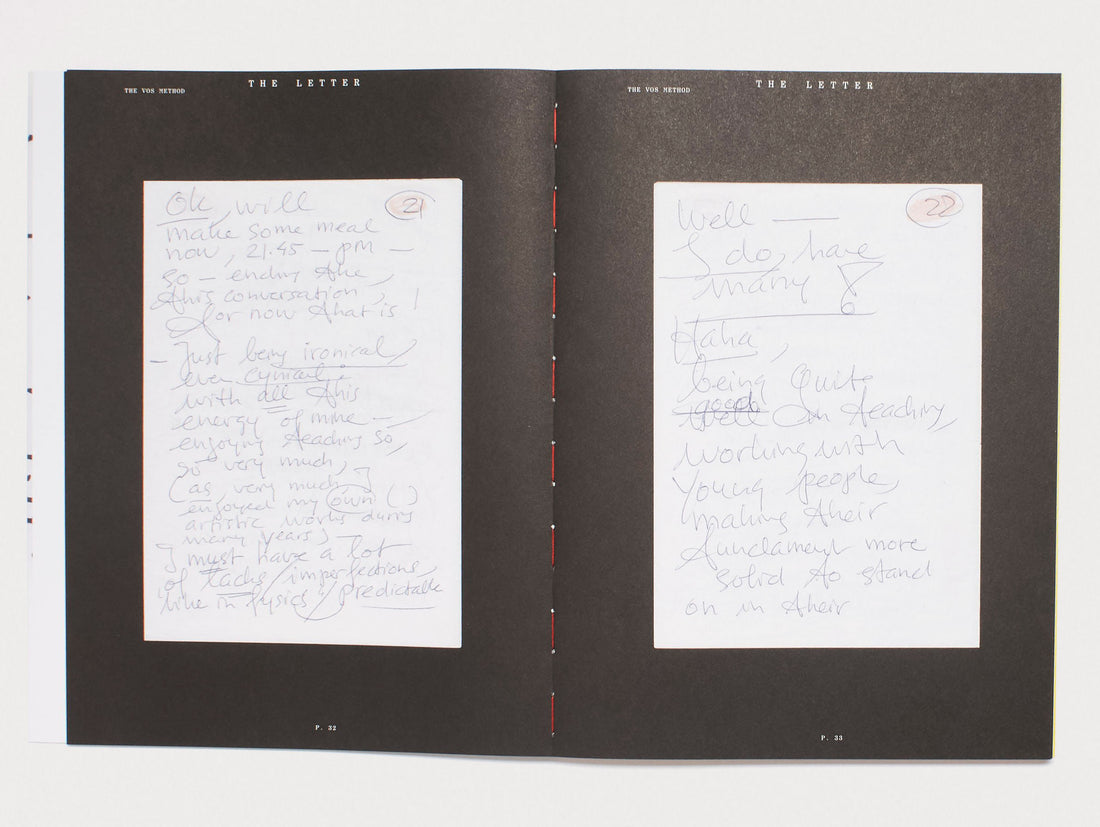 THE LETTER
THE VOS METHOD
21
Ok, will
make some meal
now, 21.45 – pm –
so – ending the,
this conversation,
for now that is !
– Just being ironical,
even cynical :
with all this
energy of mine –
enjoying teaching so,
so very much,
(as very much
enjoyed my own ( )
artistic works during
many years) –
I must have a lot
of lachs / imperfections,
like in fysics / predictable
P. 32
THE LETTER
THE VOS METHOD
22
Well —
I do, have
many !
Haha,
being quite
good
on teaching,
working with
young people,
making their
fundament more
solid to stand
on in their
P. 33